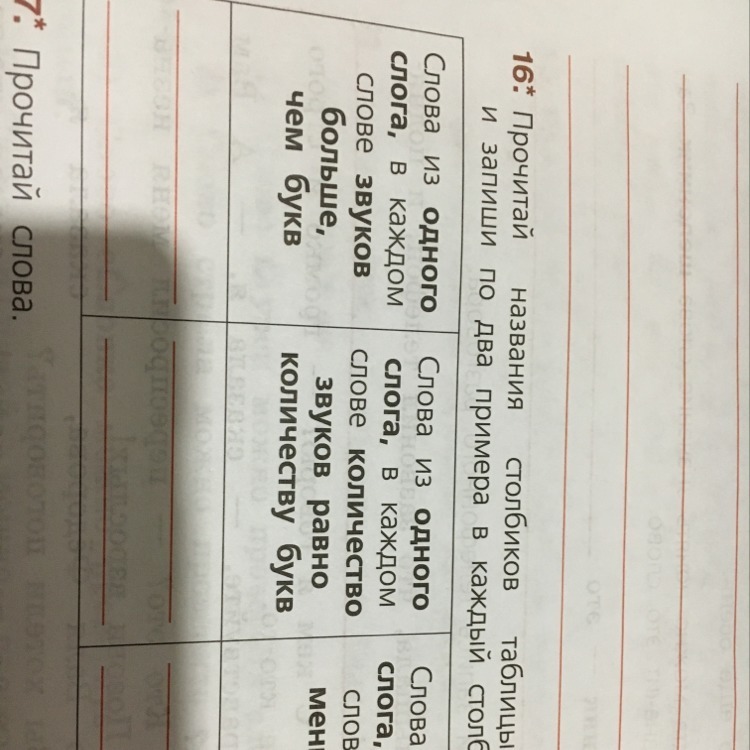 16.* Прочитай названия столбиков таблицы
и запиши по два примера в каждый столб
Слова из одного
слога, в каждом
слове звуков
больше,
чем букв
Слова из одного
слога, в каждом
слове количество
звуков равно
количеству букв
Слова
слога,
слов
мень
7.* Прочитай слова.